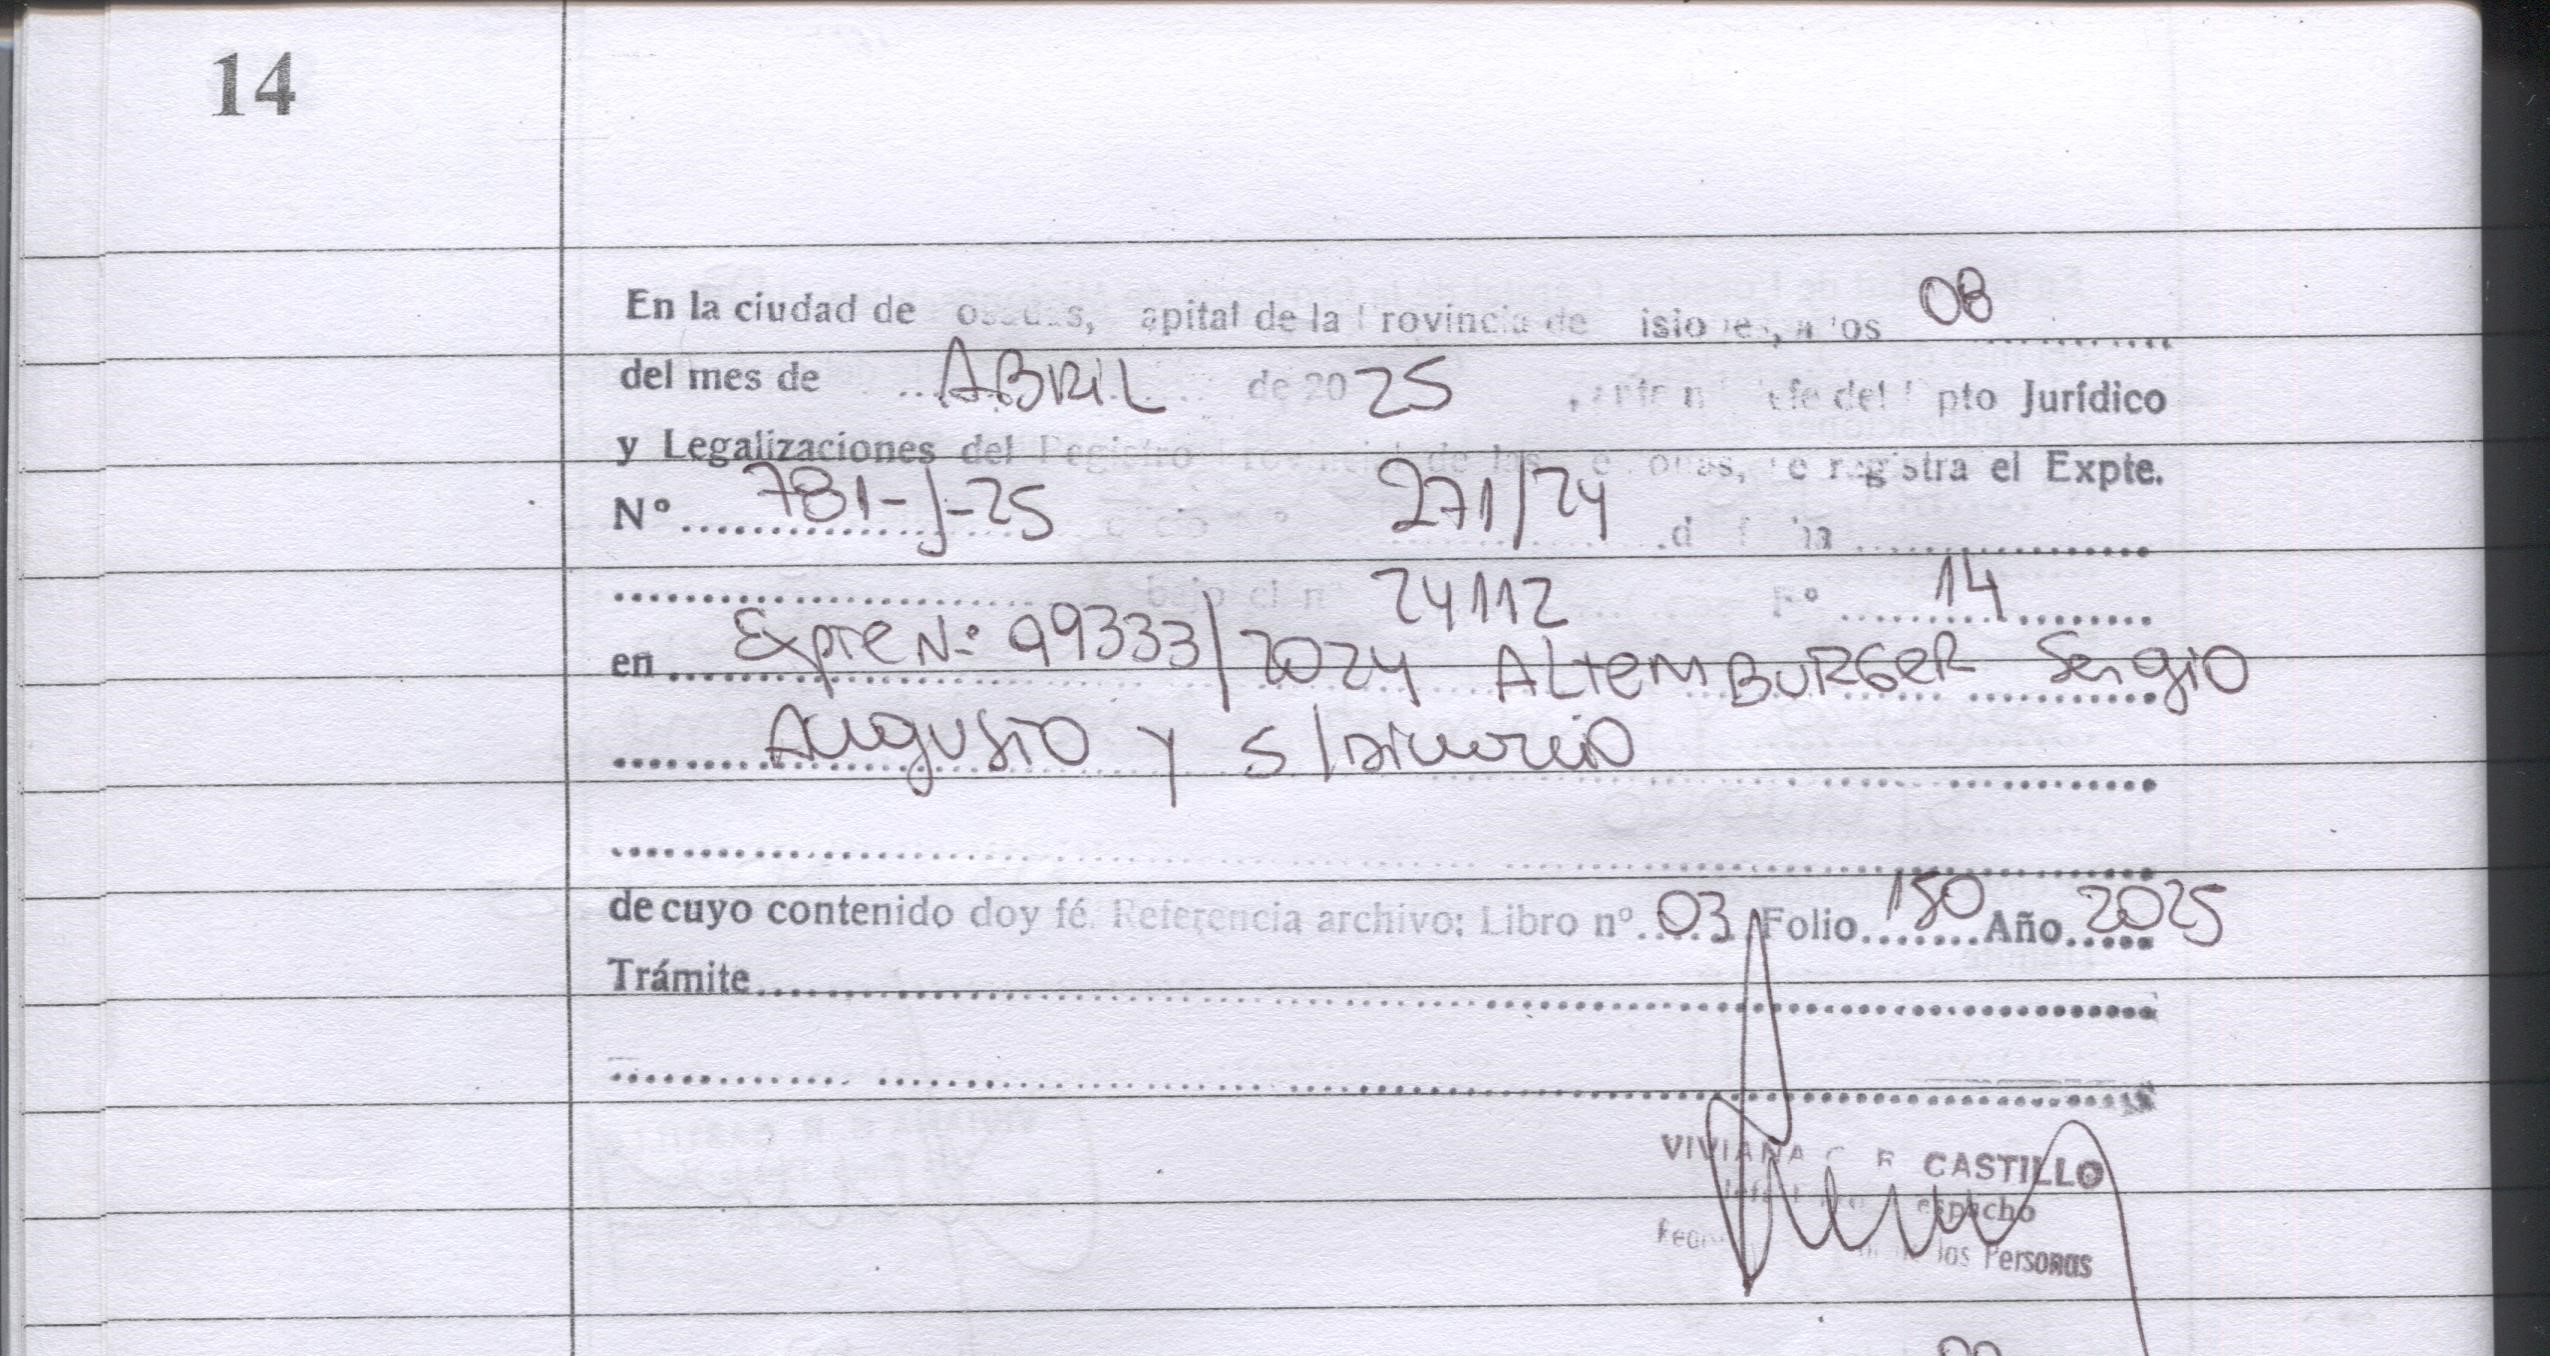 14
En la ciudad de osadas, apital de la Provincia de isiones, a los 08
del mes de ABRIL de 2025, ante mi Jefe del Dpto Jurídico
y Legalizaciones del Registro Provincial de las e onas, se registra el Expte.
Nº 781-J-25 oficio nº 271/24 de fecha
bajo el n 24112 Fº 14
en Expte Nº 99333/2024 ALTEMBURGER Sergio
Augusto y s/divorcio
de cuyo contenido doy fé. Referencia archivo: Libro nº 03 Folio 150 Año 2025
Trámite
VIVIANA CASTILLO
espacho
las Personas